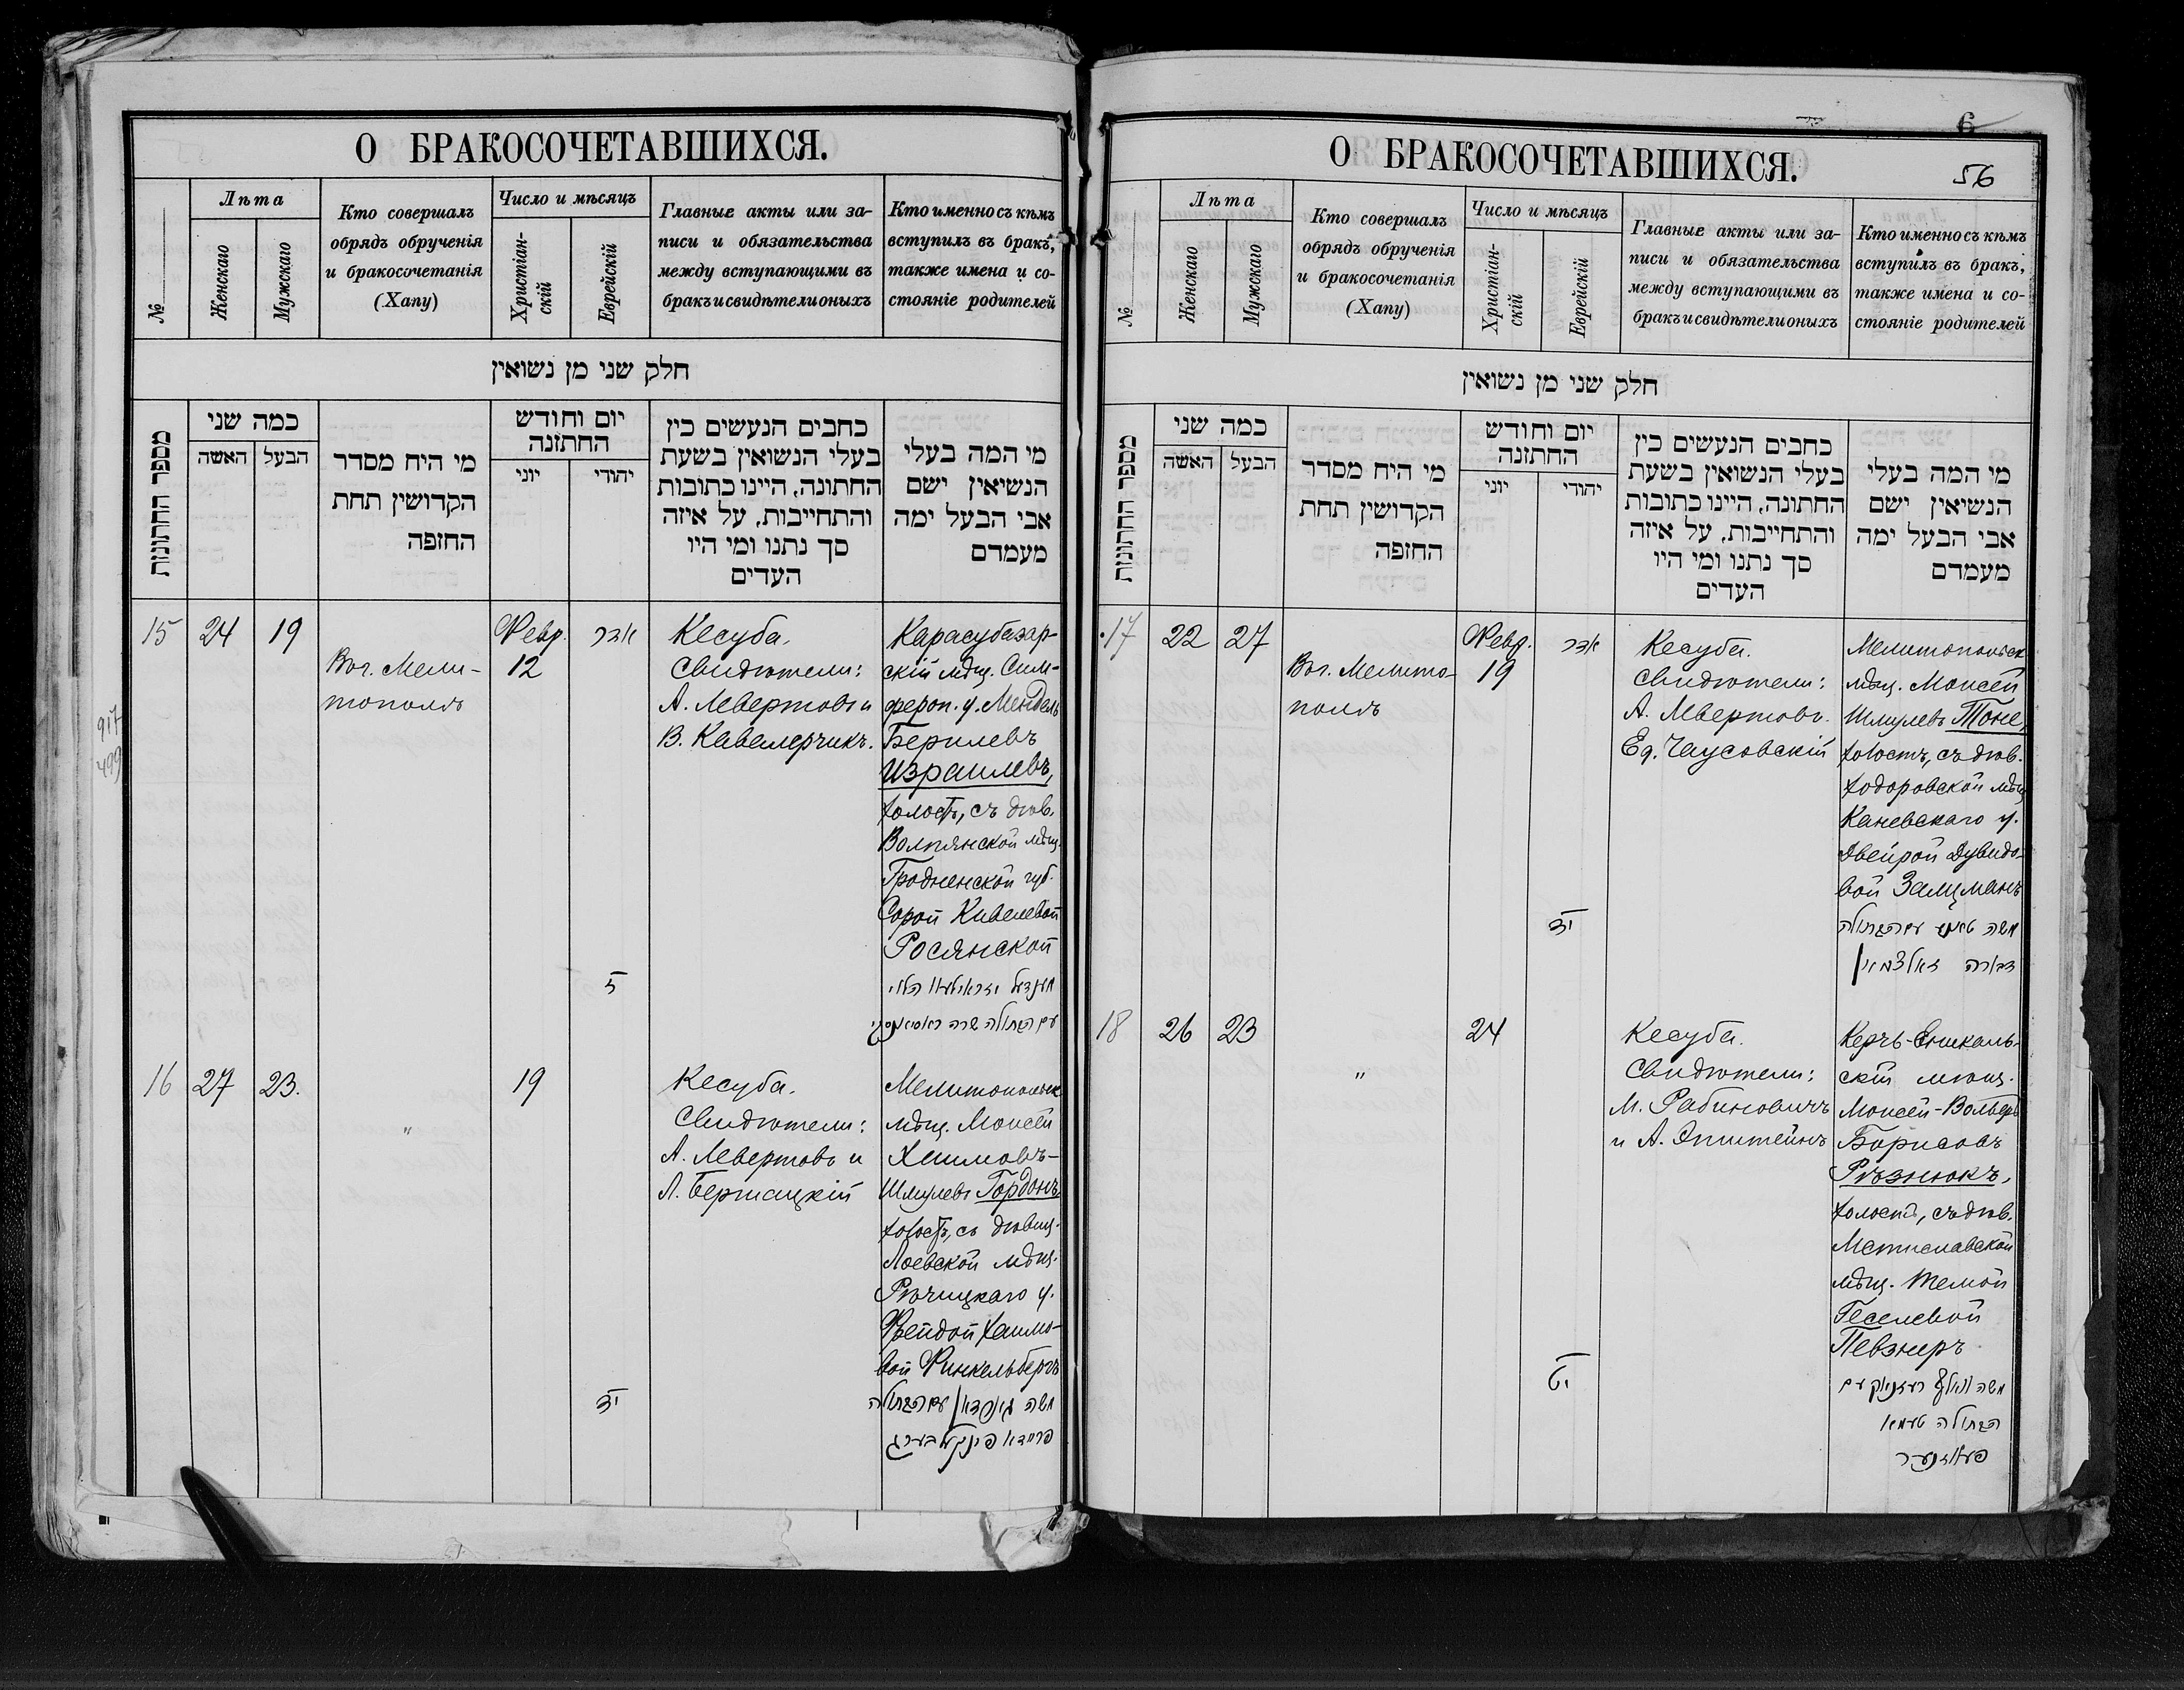 О БРАКОСОЧЕТАВШИХСЯ.
№
Лѣта
Женскаго
Мужскаго
Кто совершалъ
обрядъ обрученія
и бракосочетанія
(Хапу)
Число и мѣсяцъ
Христіан-
скій
Еврейскій
Главные акты или за-
писи и обязательства
между вступающими въ
бракъ и свидѣтели оныхъ
Кто именно съ кѣмъ
вступилъ въ бракъ,
также имена и со-
стояніе родителей
חלק שני מן נשואין
מספר החתונות
כמה שני
האשה
הבעל
מי היח מסדר
הקדושין תחת
החזפה
יום וחודש
החתזנה
יוני
יהודי
כחבים הנעשים כין
בעלי הנשואין בשעת
החתונה, היינו כתובות
והתחייבות, על איזה
סך נתנו ומי היו
העדים
מי המה בעלי
הנשיאין ישם
אבי הבעל ימה
מעמדם
15
24
19
Воч. Мели-
тополѣ
Февр.
12
אדר
ה
Кесуба.
Свидѣтели:
А. Левертовъ и
В. Кавалерчикъ.
Карасубазар-
скій мѣщ. Сим-
фероп. у. Мендель
Берилевъ
Израилевъ,
холостъ, съ дѣв.
Волпянской мѣщ.
Гродненской губ.
Сорой Кивелевой
Росянской
הלוי
עם הבתולה שרה
16
27
23.
"
19
יד
Кесуба.
Свидѣтели:
А. Левертовъ и
Л. Бершацкій
Мелитопольск.
мѣщ. Моисей
Хаимовъ-
Шмулевъ Гордонъ,
холостъ, съ дѣвиц.
Лоевской мѣщ.
Рѣчицкаго у.
Фрейдой Хаимо-
вой Финкельбергъ
משה גארדאן עם הבתולה
פריידא פינקעלבערג
917
499
О БРАКОСОЧЕТАВШИХСЯ.
6
56
№
Лѣта
Женскаго
Мужскаго
Кто совершалъ
обрядъ обрученія
и бракосочетанія
(Хапу)
Число и мѣсяцъ
Христіан-
скій
Еврейскій
Главные акты или за-
писи и обязательства
между вступающими въ
бракъ и свидѣтели оныхъ
Кто именно съ кѣмъ
вступилъ въ бракъ,
также имена и со-
стояніе родителей
חלק שני מן נשואין
מספר החתונות
כמה שני
האשה
הבעל
מי היח מסדר
הקדושין תחת
החזפה
יום וחודש
החתזנה
יוני
יהודי
כחבים הנעשים כין
בעלי הנשואין בשעת
החתונה, היינו כתובות
והתחייבות, על איזה
סך נתנו ומי היו
העדים
מי המה בעלי
הנשיאין ישם
אבי הבעל ימה
מעמדם
17
22
27
Воч. Мелито-
полѣ
Февр.
19
אדר
יד
Кесуба.
Свидѣтели:
А. Левертовъ.
Ед. Чаусовскій
Мелитопольск.
мѣщ. Моисей
Шмулевъ Тоне,
холостъ, съ дѣв.
Ходоровской мѣщ.
Каневскаго у.
Двейрой Дувидо-
вой Залцманъ
משה עם הבתולה
דבורה זאלצמאן
18
26
23
"
24
יט
Кесуба.
Свидѣтели:
М. Рабиновичъ
и А. Эпштейнъ
Керчь-Еникаль-
скій мѣщ.
Моисей-Вольфъ
Борисовъ
Рѣзнюкъ,
холостъ, съ дѣв.
Мстиславской
мѣщ. Темой
Геселевой
Певзнеръ
משה וואלף רעזניוק עם
הבתולה טעמא
פעווזנער